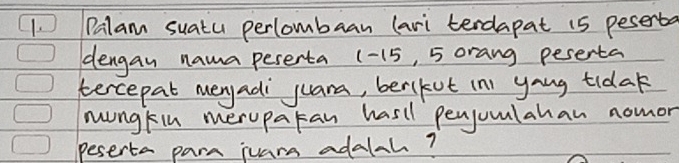 1. Dalam suatu perlombaan lari terdapat 15 peserta
dengan nama peserta 1-15, 5 orang peserta
tercepat menjadi juara, berikut ini yang tidak
mungkin merupakan hasil penjumlahan nomor
peserta para juara adalah?